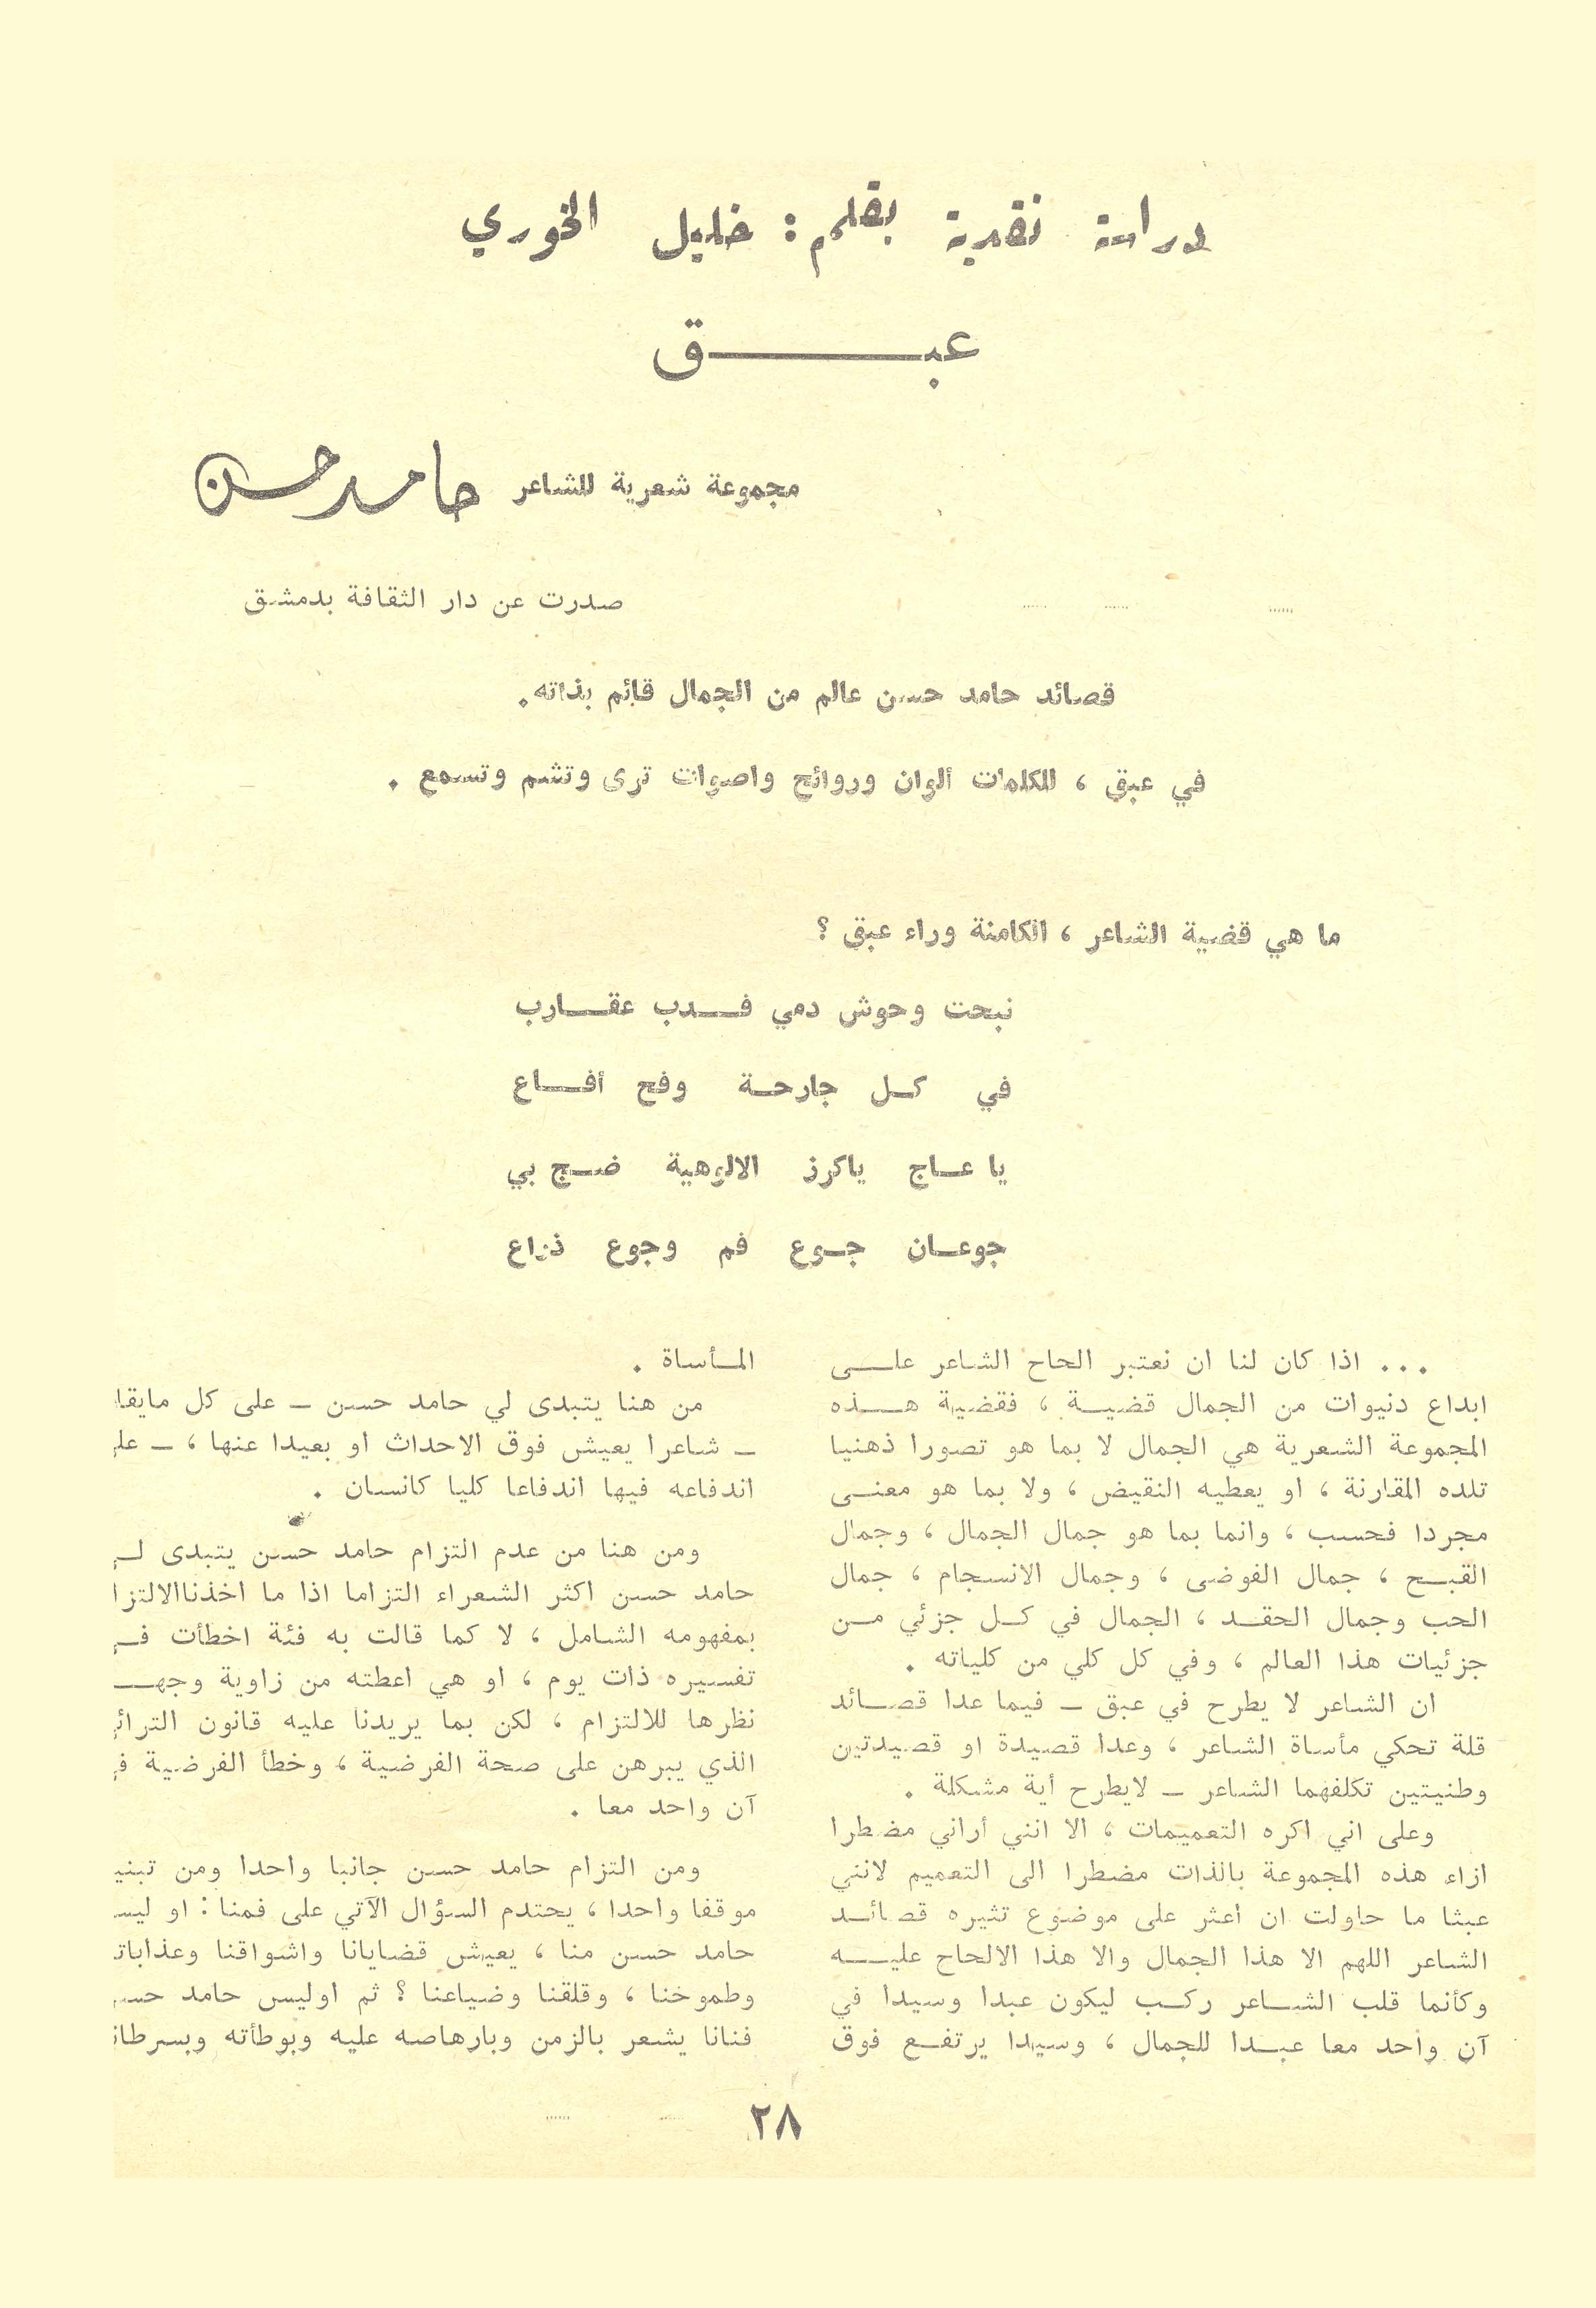 دراسة نقدية بقلم : خليل الخوري
عبـــــــق
مجموعة شعرية للشاعر حامد حسن
صدرت عن دار الثقافة بدمشق
قصائد حامد حسن عالم من الجمال قائم بذاته .
في عبق ، للكلمات ألوان وروائح واصوات ترى وتشم وتسمع .
ما هي قضية الشاعر ، الكامنة وراء عبق ؟
نبحت وحوش دمي فـــدب عقــارب
في كـل جارحـة وفح أفــاع
يا عـاج ياكرز الالوهية ضـج بي
جوعـان جـوع فم وجوع ذراع
... اذا كان لنا ان نعتبر الحاح الشاعر علــى
ابداع دنيوات من الجمال قضيــة ، فقضية هــذه
المجموعة الشعرية هي الجمال لا بما هو تصورا ذهنيا
تلده المقارنة ، او يعطيه النقيض ، ولا بما هو معنــى
مجردا فحسب ، وانما بما هو جمال الجمال ، وجمال
القبــح ، جمال الفوضى ، وجمال الانسجام ، جمال
الحب وجمال الحقــد ، الجمال في كــل جزئي مــن
جزئيات هذا العالم ، وفي كل كلي من كلياته .
ان الشاعر لا يطرح في عبق ـ فيما عدا قصــائد
قلة تحكي مأساة الشاعر ، وعدا قصيدة او قصيدتين
وطنيتين تكلفهما الشاعر ـ لايطرح أية مشكلة .
وعلى اني اكره التعميمات ، الا انني أراني مضطرا
ازاء هذه المجموعة بالذات مضطرا الى التعميم لانني
عبثا ما حاولت ان أعثر على موضوع تثيره قصائــد
الشاعر اللهم الا هذا الجمال والا هذا الالحاح عليــه
وكأنما قلب الشــاعر ركــب ليكون عبدا وسيدا في
آن واحد معا عبــدا للجمال ، وسيدا يرتفــع فوق
المــأساة .
من هنا يتبدى لي حامد حسن ـ على كل مايقا
ـ شاعرا يعيش فوق الاحداث او بعيدا عنها ، ـ عل
اندفاعه فيها اندفاعا كليا كانسان .
ومن هنا من عدم التزام حامد حسن يتبدى لــ
حامد حسن اكثر الشعراء التزاما اذا ما اخذناالالتزا
بمفهومه الشامل ، لا كما قالت به فئة اخطأت فــ
تفسيره ذات يوم ، او هي اعطته من زاوية وجهــ
نظرها للالتزام ، لكن بما يريدنا عليه قانون الترائ
الذي يبرهن على صحة الفرضية ، وخطأ الفرضية ف
آن واحد معا .
ومن التزام حامد حسن جانبا واحدا ومن تبني
موقفا واحدا ، يحتدم السؤال الآتي على فمنا : او ليس
حامد حسن منا ، يعيش قضايانا واشواقنا وعذابات
وطموحنا ، وقلقنا وضياعنا ؟ ثم اوليس حامد حس
فنانا يشعر بالزمن وبارهاصه عليه وبوطأته وبسرطان
٢٨